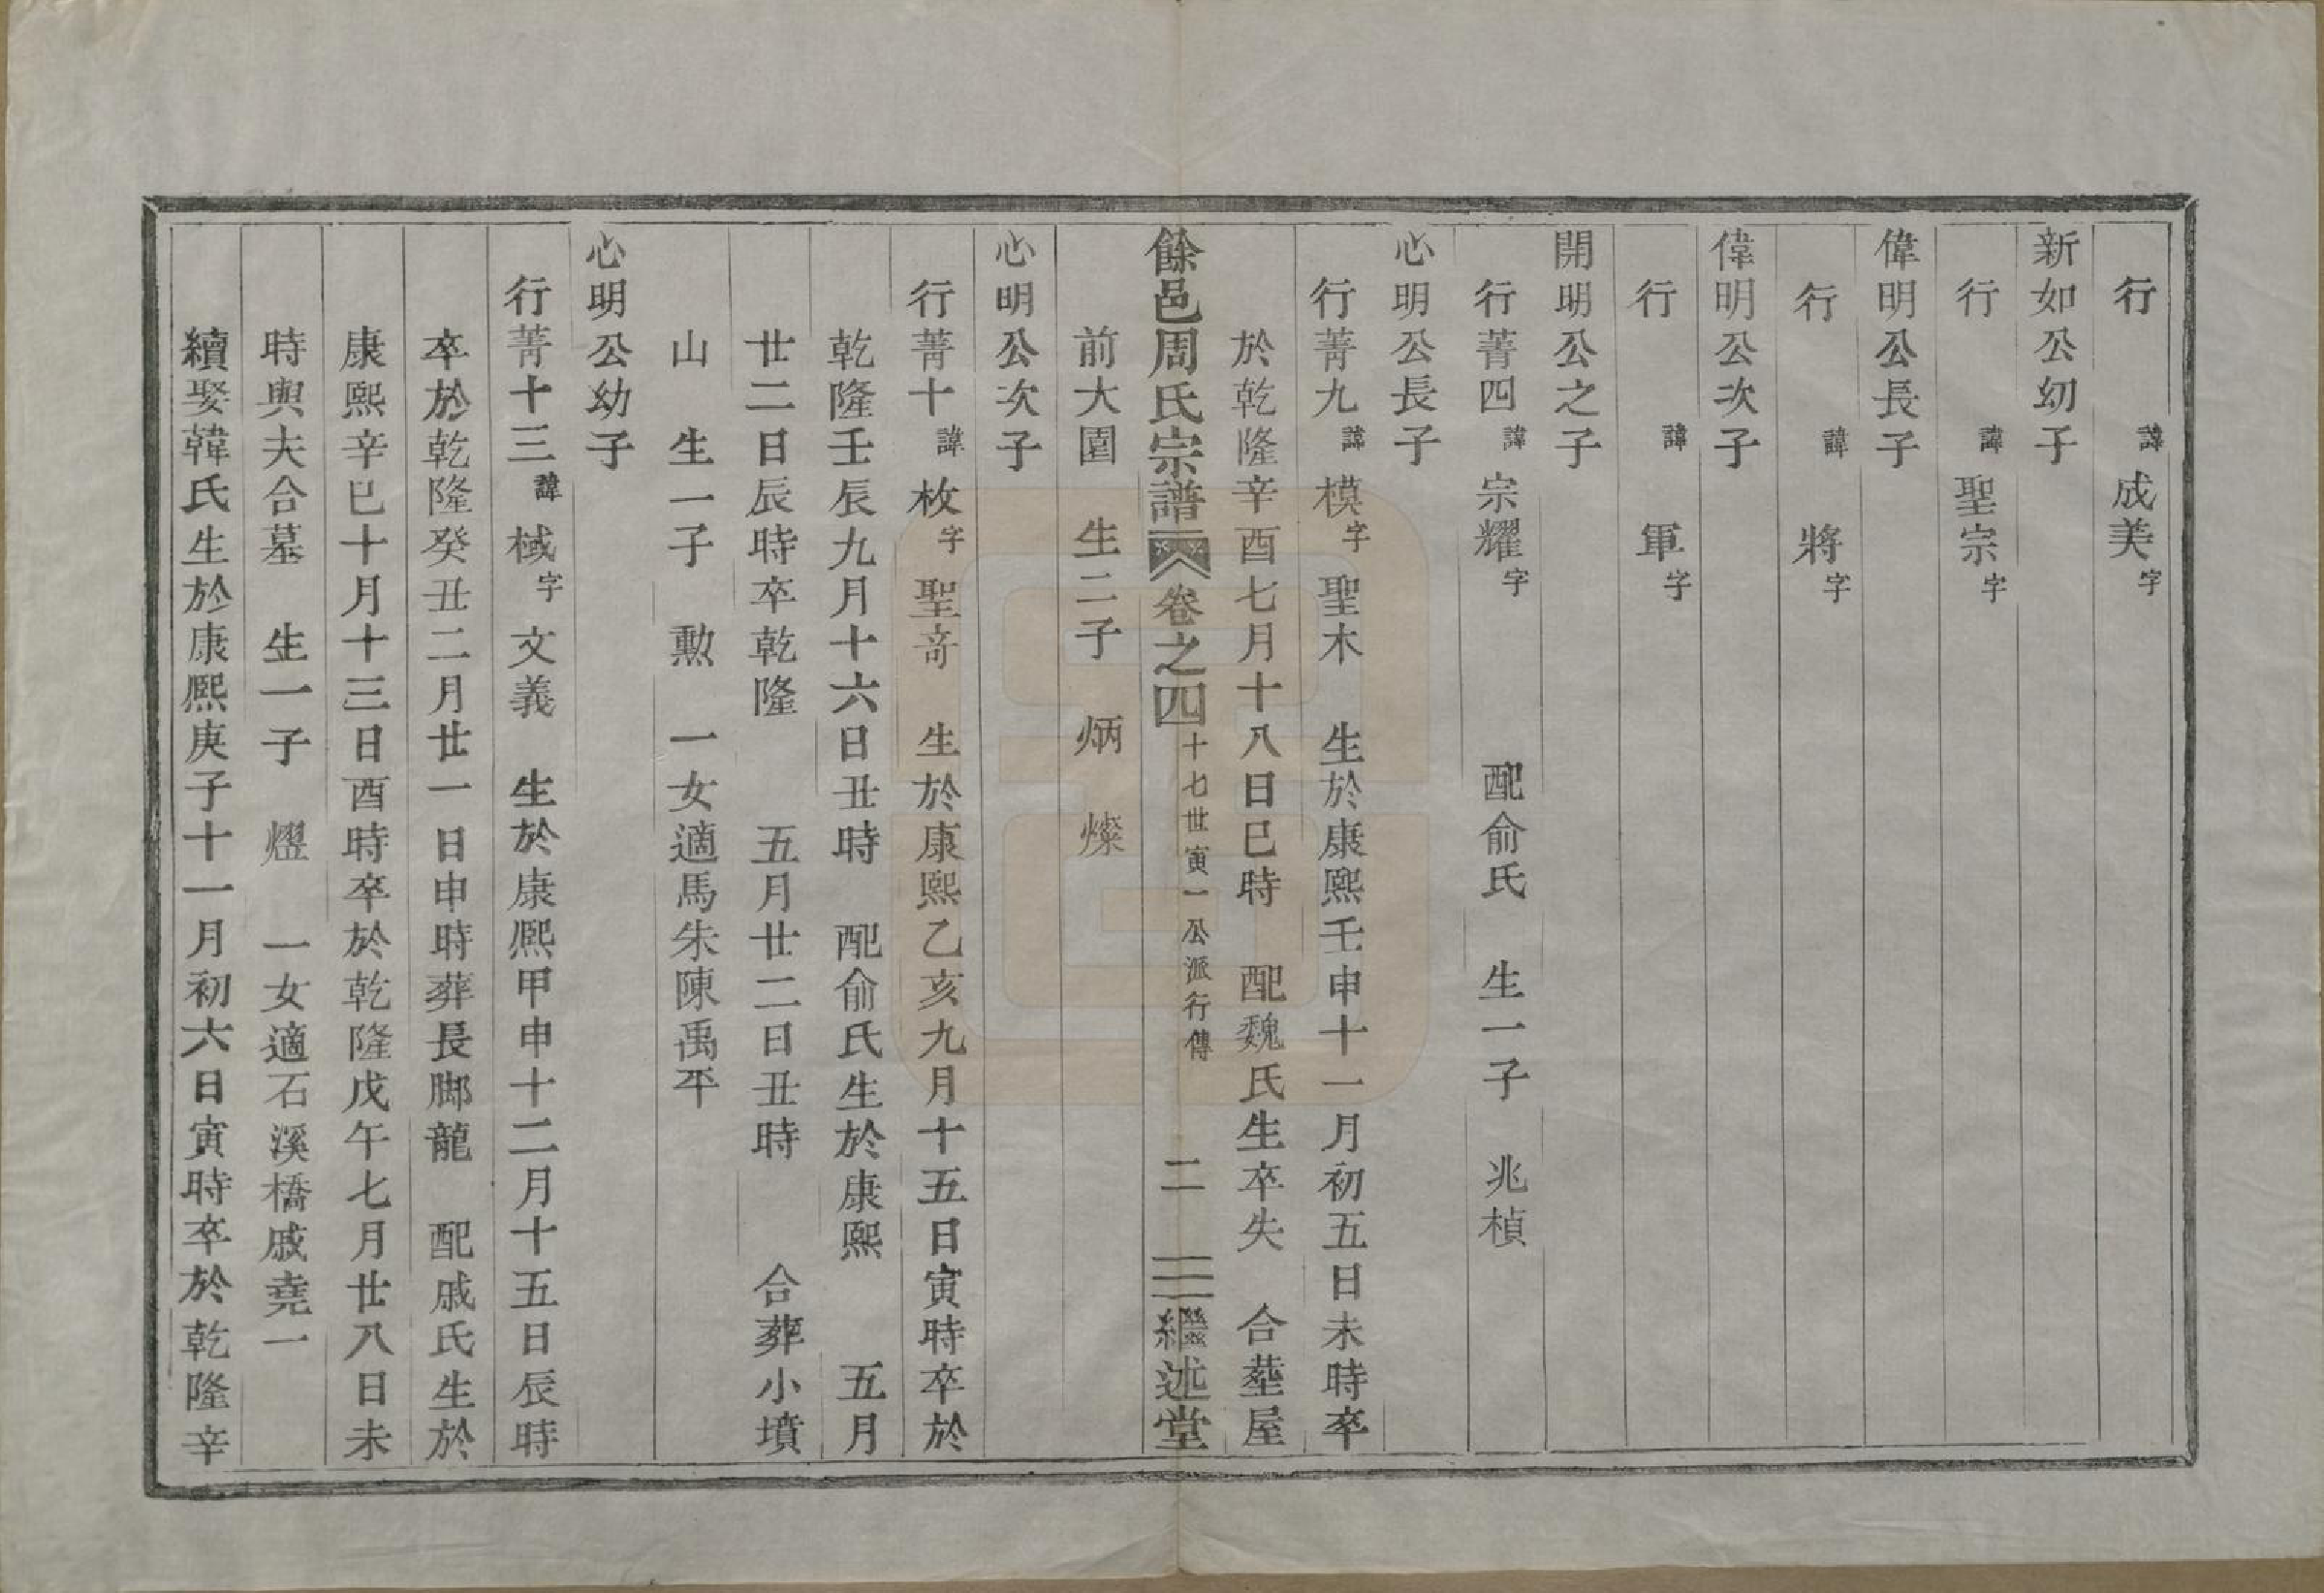 行 諱成美字
新如公幼子
行 諱聖宗字
偉明公長子
行 諱將字
偉明公次子
行 諱軍字
開明公之子
行菁四諱宗耀字 配俞氏 生一子 兆楨
心明公長子
行菁九諱模字聖木 生於康熙壬申十一月初五日未時卒
於乾隆辛酉七月十八日巳時 配魏氏生卒失 合塟屋
餘邑周氏宗譜 卷之四 十七世寅一公派行傳 二 繼述堂
前大園 生二子 炳 燦
心明公次子
行菁十諱枚字聖奇 生於康熙乙亥九月十五日寅時卒於
乾隆壬辰九月十六日丑時 配俞氏生於康熙 五月
廿二日辰時卒乾隆 五月廿二日丑時 合葬小墳
山 生一子 勲 一女適馬朱陳禹平
心明公幼子
行菁十三諱棫字文義 生於康熙甲申十二月十五日辰時
卒於乾隆癸丑二月廿一日申時葬長脚龍 配戚氏生於
康熙辛巳十月十三日酉時卒於乾隆戊午七月廿八日未
時與夫合墓 生一子 燿 一女適石溪橋戚堯一
續娶韓氏生於康熙庚子十一月初六日寅時卒於乾隆辛